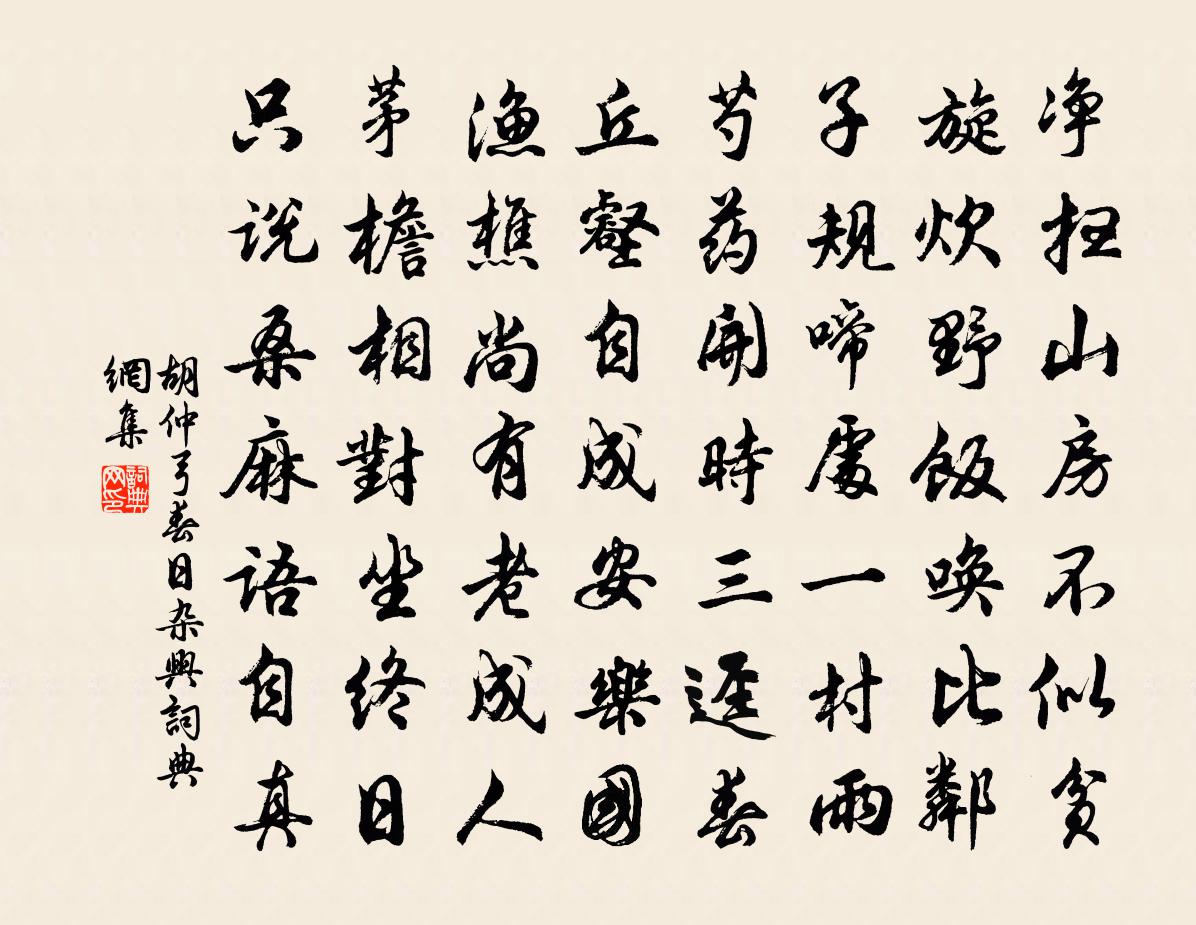 净扫山房不似贫
旋炊野饭唤比鄰
子规啼處一村雨
芍药開時三逕春
丘壑自成安樂國
漁樵尚有老成人
茅檐相對坐终日
只说桑麻语自真
胡仲弓春日杂興詞典
網集
詞典
网